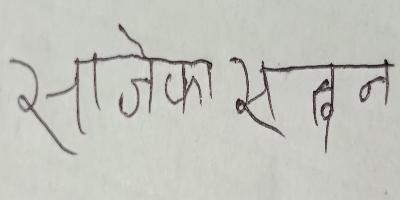 साजेका सदन